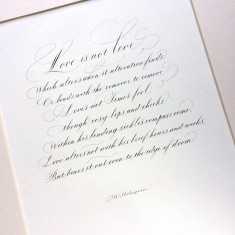 Love is not Love,
Which alters when it alteration finds,
Or bends with the remover to remove.
Love's not Time's fool,
though rosy lips and cheeks
Within his bending sickle's compass come
Love alters not with his brief hours and weeks,
But bears it out even to the edge of doom.
W. Shakespeare